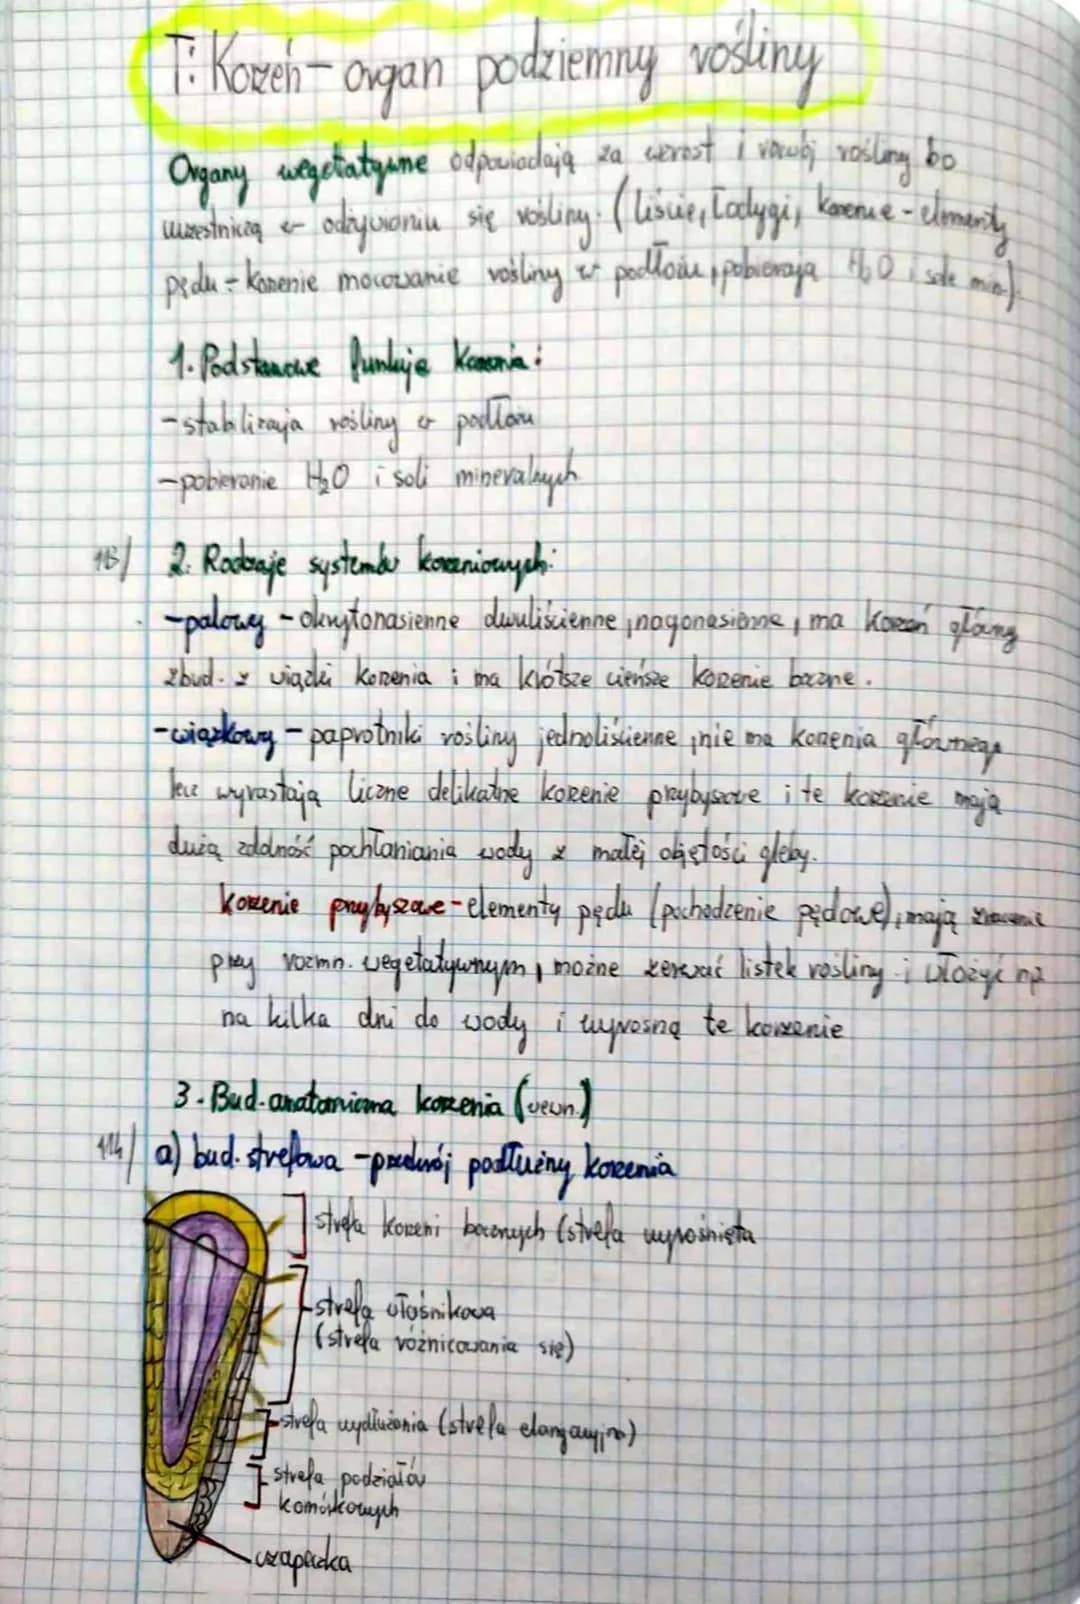 T: Korzeń - organ podziemny rośliny
Organy wegetatywne odpowiadają za wzrost i rozwój rośliny bo
uczestniczą w odżywianiu się rośliny. (liście, łodygi, korzenie - elementy
pędu - korzenie mocowanie rośliny w podłożu, pobierają H₂O i sole min.).
1. Podstawowe funkcje korzenia:
- stabilizacja rośliny w podłożu
- pobieranie H₂O i soli mineralnych
113/ 2. Rodzaje systemów korzeniowych:
- palowy - okrytonasienne dwuliścienne, nagonasienne, ma korzeń główny
zbud. z wiązki korzenia i ma krótsze cieńsze korzenie boczne.
- wiązkowy - paprotniki rośliny jednoliścienne, nie ma korzenia głównego
lecz wyrastają liczne delikatne korzenie przybyszowe i te korzenie mają
dużą zdolność pochłaniania wody z małej objętości gleby.
korzenie przybyszowe - elementy pędu (pochodzenie pędowe), mają znaczenie
przy rozmn. wegetatywnym, możne zerwać listek rośliny i włożyć np
na kilka dni do wody i wyrosną te korzenie
3. Bud. anatomiczna korzenia (wewn.)
114/ a) bud. strefowa - przekrój podłużny korzenia
strefa korzeni bocznych (strefa wyrośnięta
strefa włośnikowa
(strefa różnicowania się)
strefa wydłużania (strefa elongacyjna)
strefa podziałów
komórkowych
czapeczka